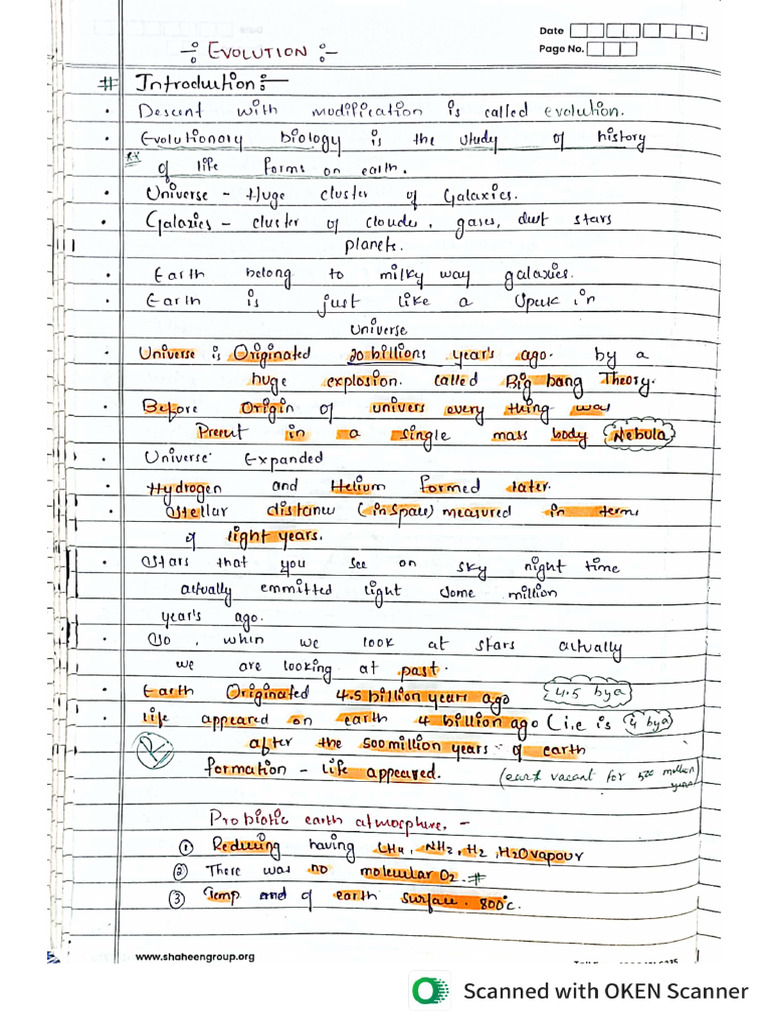 Date
Page No.
-: EVOLUTION :-
# Introduction :-
• Descent with modification is called evolution.
• Evolutionary biology is the study of history
of life forms on earth.
• Universe - Huge cluster of Galaxies.
• Galaxies - cluster of clouds, gases, dust stars
planets.
• Earth belong to milky way galaxies.
• Earth is just like a speck in
universe
• Universe is Originated 20 billions year's ago. by a
huge explosion. called Big bang Theory.
• Before Origin of univers every thing was
Present in a single mass body Nebula
• Universe Expanded
• Hydrogen and Helium formed later.
• Stellar distance (in space) measured in terms
of light years.
• Stars that you see on sky night time
actually emmitted light some million
year's ago.
• So, when we look at stars actually
we are looking at past.
• Earth Originated 4.5 billion years ago 4.5 bya
• life appeared on earth 4 billion ago (i.e is 4 bya)
after the 500 million years of earth
formation - life appeared. (earth vacant for 500 million
years)
Probiotic earth atmosphere. -
① Reducing having CH4, NH2, H2, H2O vapour
② There was no molecular O2. #
③ Temp of earth surface. 800°c.
www.shaheengroup.org
Scanned with OKEN Scanner